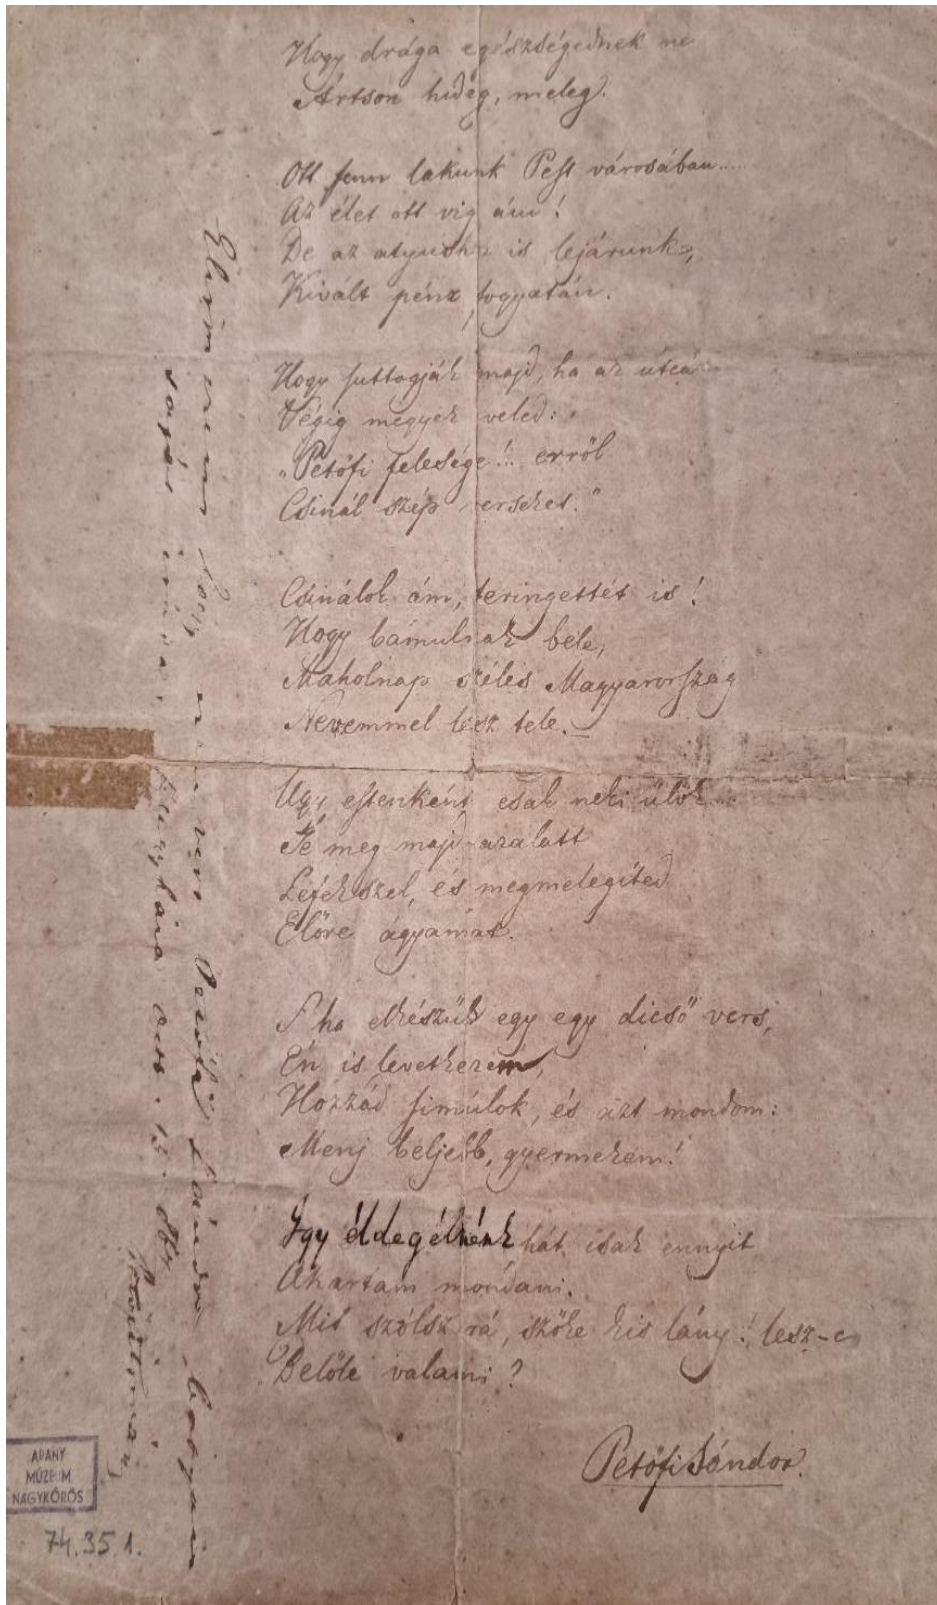 Hogy drága egészségednek ne
Ártson hideg, meleg.
Ott fenn lakunk Pest városában....
Az élet ott vig ám!
De az is lejárunk,
Kivált pénz fogyatán.
Hogy suttogják majd, ha az utcá
Végig megyek veled:
„Petőfi felesége!.. erről
Csinál szép verseket."
Csinálok ám, teringettét is!
Hogy bámulnak bele,
Maholnap széles Magyarország
Nevemmel lesz tele.
Ugy estenként csak neki ülök
Te meg majd azalatt
Lefekszel, és megmelegíted
Előre ágyamat.
S ha elkészűlt egy egy dicső vers,
Én is levetkezem,
Hozzád simúlok, és azt mondom:
Menj beljebb, gyermekem!
Igy éldegélnénk hát, csak ennyit
Akartam mondani.
Mit szólsz rá, szőke kis lány! lesz-e
Belőle valami?
Petőfi Sándor.
Elismerem hogy ezen vers Petőfi Sándor bátyám
saját irása.
oct. 13.
ARANY
MÚZEUM
NAGYKŐRÖS
74.35.1.